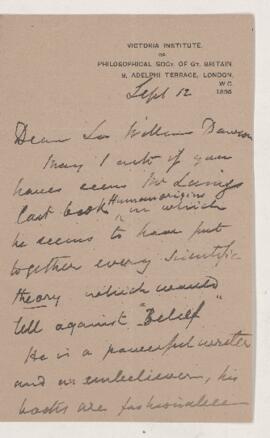 VICTORIA INSTITUTE,
OR
PHILOSOPHICAL SOCY. OF GT. BRITAIN.
9, ADELPHI TERRACE, LONDON,
W.C.
Sept 12
Dear Sir William Dawson
May I ask if you
have seen Mr Laings
last book "Human origins" in which
he seems to have put
together every scientific
theory which would
tell against "Belief"
He is a powerful writer
and an unbeliever, his
books are fashionable